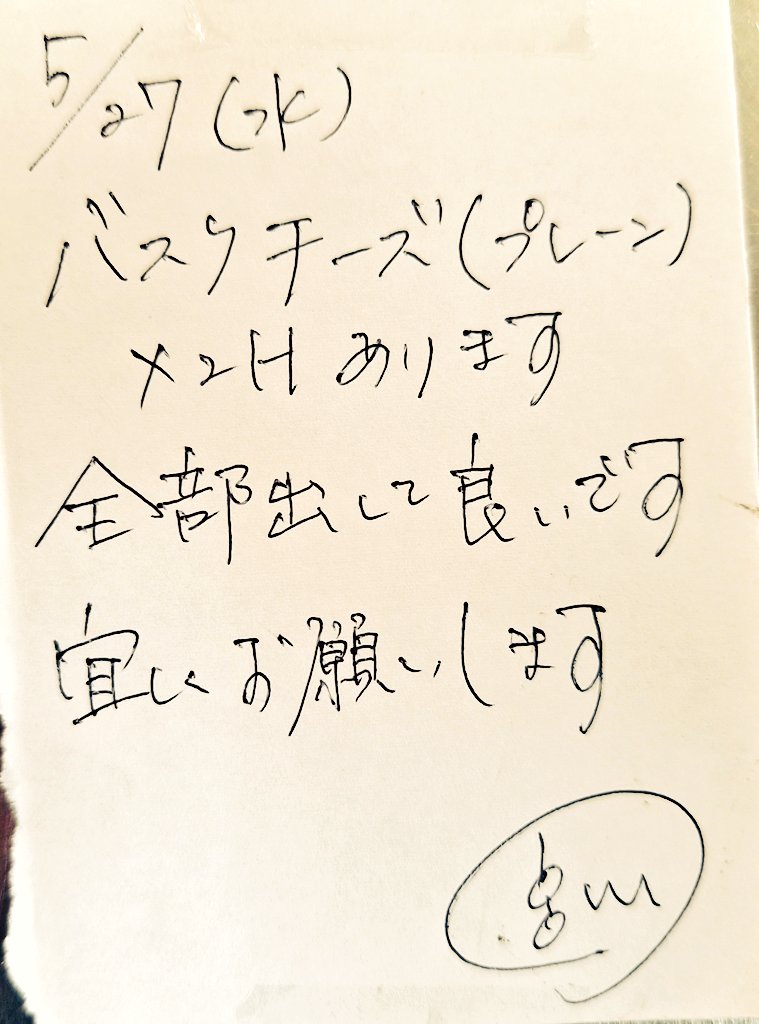 5/27(水)
バスクチーズ(プレーン)
×2Hあります
全部出して良いです
宜しくお願いします
宮川